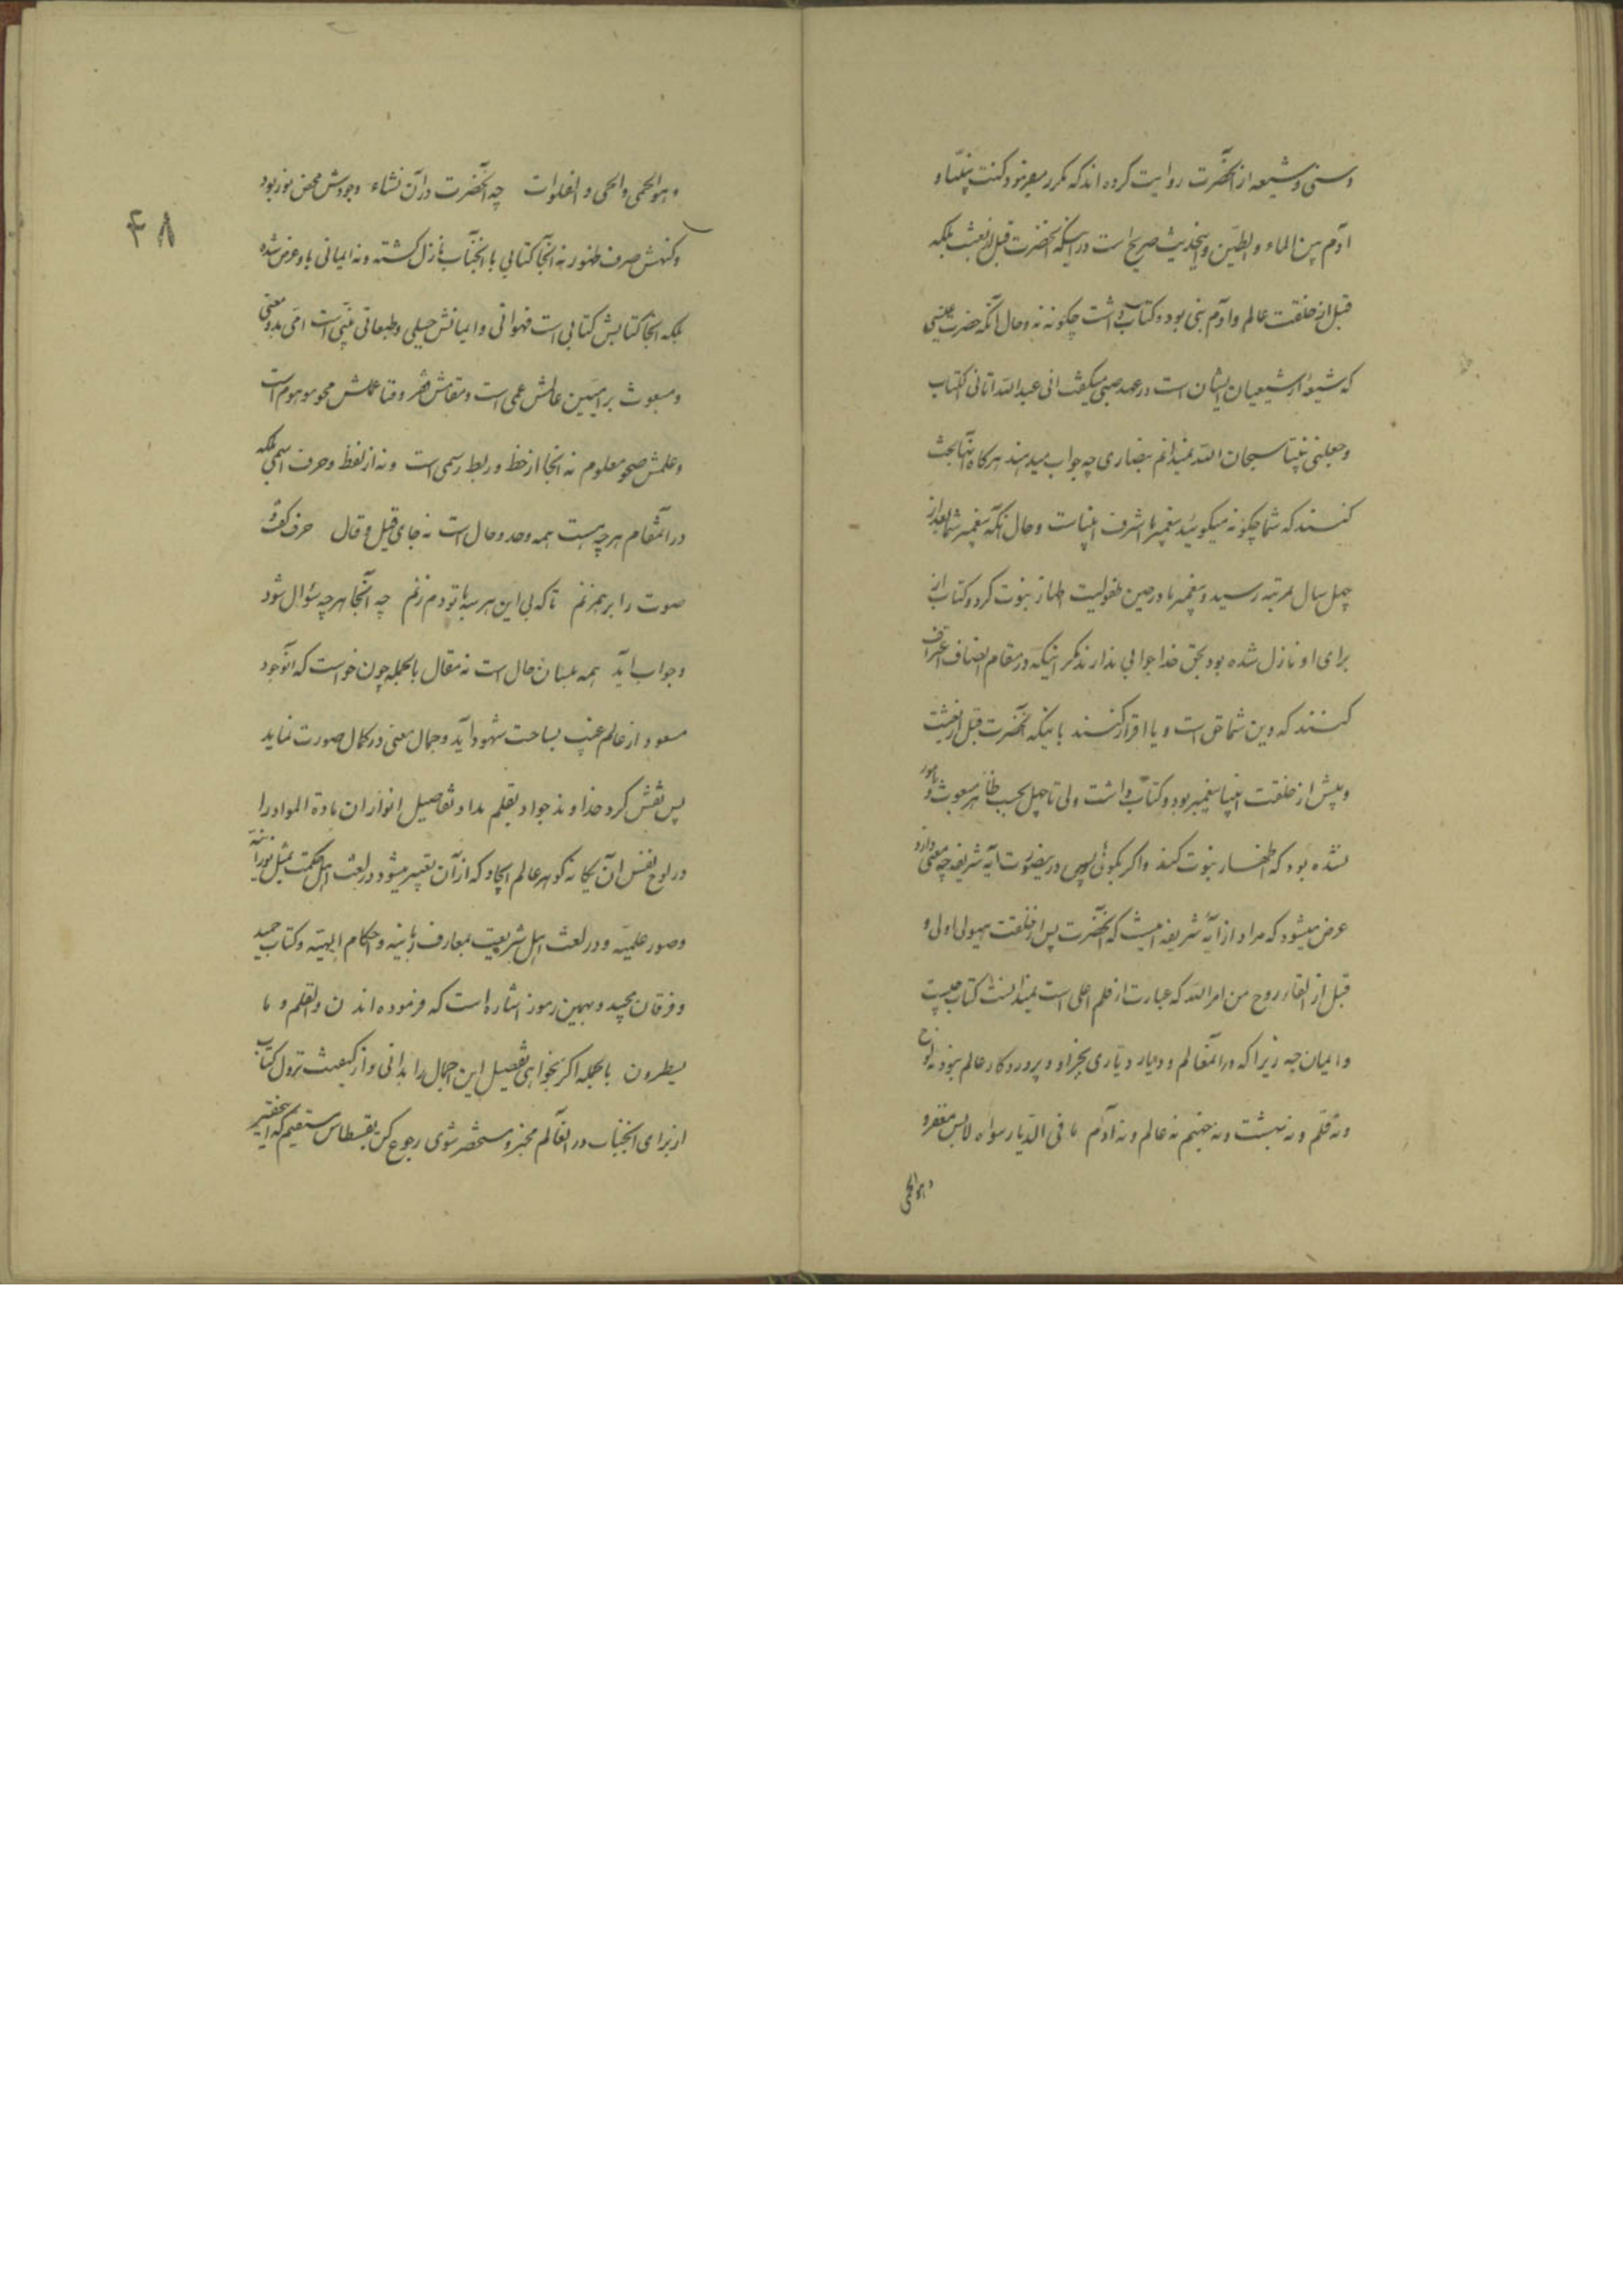 و سنی و شیعه از آنحضرت روایت کرده اند که مکرر میفرمود کنت نبیّاً و
آدم بین الماء و الطین و اینحدیث صریح است در اینکه آنحضرت قبل از بعثت بلکه
قبل از خلقت عالم و آدم نبی بود و کتاب داشت چگونه نه و حال آنکه حضرت عیسی
که شیعهٔ از شیعیان ایشان است در عهد صبی میگفت انی عبد الله آتانی الکتاب
و جعلنی نبیّا سبحان الله نمیدانم بنصاری چه جواب میدهند هرگاه آنها بحث
کنند که شما چگونه میگوئید پیغمبر ما اشرف انبیاست و حال آنکه پیغمبر شما بعد از
چهل سال بمرتبه رسید و پیغمبر ما در حین طفولیت اظهار نبوت کرد و کتاب از
برای او نازل شده بود بحق خدا جوابی ندارند مگر اینکه در مقام انصاف اعتراف
کنند که دین شما حق است و یا اقرار کنند باینکه آنحضرت قبل از بعثت
و پیش از خلقت انبیا پیغمبر بود و کتاب داشت ولی تا چهل بحسب ظاهر مبعوث و مامور
نشده بود که اظهار نبوت کند و اگر بگوئی پس در اینصورت آیه شریفه چه معنی دارد
عرض میشود که مراد از آیهٔ شریفه اینست که آنحضرت پس از خلقت هیولی اولی و
قبل از القاء روح من امر الله که عبارت از قلم اعلی است نمیدانست کتاب چیست
و ایمان چه زیرا که در آنعالم و دیار دیّاری بجز او و پروردگار عالم نبود نه لوح
و نه قلم و نه بهشت و نه جهنم نه عالم و نه آدم ما فی الدیار سواه لابس مغفر و
و هو الحمی
۴۸
و هو الحمی و الحی و الفلوات چه آنحضرت در آن نشاء وجودش محض نور بود
و کنهش صرف ظهور نه آنجا کتابی با آنجناب نازل گشته و نه ایمانی باو عرض شده
بلکه آنجا کتابش کتابی است فهوانی و ایمانش جبلی و طبعانی نبی است امّی بدو معنی
و مبعوث بر امیین عالمش عمی است و مقامش محو موهوم است
و علمش صحو معلوم نه آنجا از خط و ربط رسمی است و نه از لفظ و حرف اسمی بلکه
در آنمقام هر چه هست همه وجد و حال است نه جای قیل و قال حرف و گفت و
صوت را بر هم زنم تا که بی این هر سه با تو دم زنم چه آنجا هر چه سؤال شود
و جواب آید همه بلسان حال است نه مقال بالجمله چون خواست که آنوجود
مسعود از عالم غیب بساحت شهود آید و جمال معنی در کمال صورت نماید
پس نقش کرد خداوند جواد بقلم مداد تفاصیل انوار آن مادة المواد را
در لوح نفس آن یگانه گوهر عالم ایجاد که از آن تعبیر میشود در لغت اهل حکمت بمثل نوریّه
و صور علمیّه و در لغت اهل شریعت بمعارف ربانیه و احکام الهیّه و کتاب حمید
و فرقان مجید و بهمین رموز اشاره است که فرموده اند ن و القلم و ما
یسطرون بالجمله اگر بخواهی تفصیل این اجمال را بدانی و از کیفیت نزول کتاب
از برای آنجناب در آنعالم مخبر و مستحضر شوی رجوع کن بقسطاس مستقیم که اینحقیر